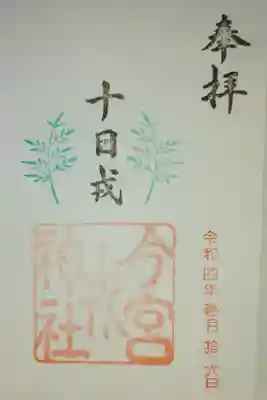 奉拝
十日戎
今宮
神社
令和四年壱月拾六日